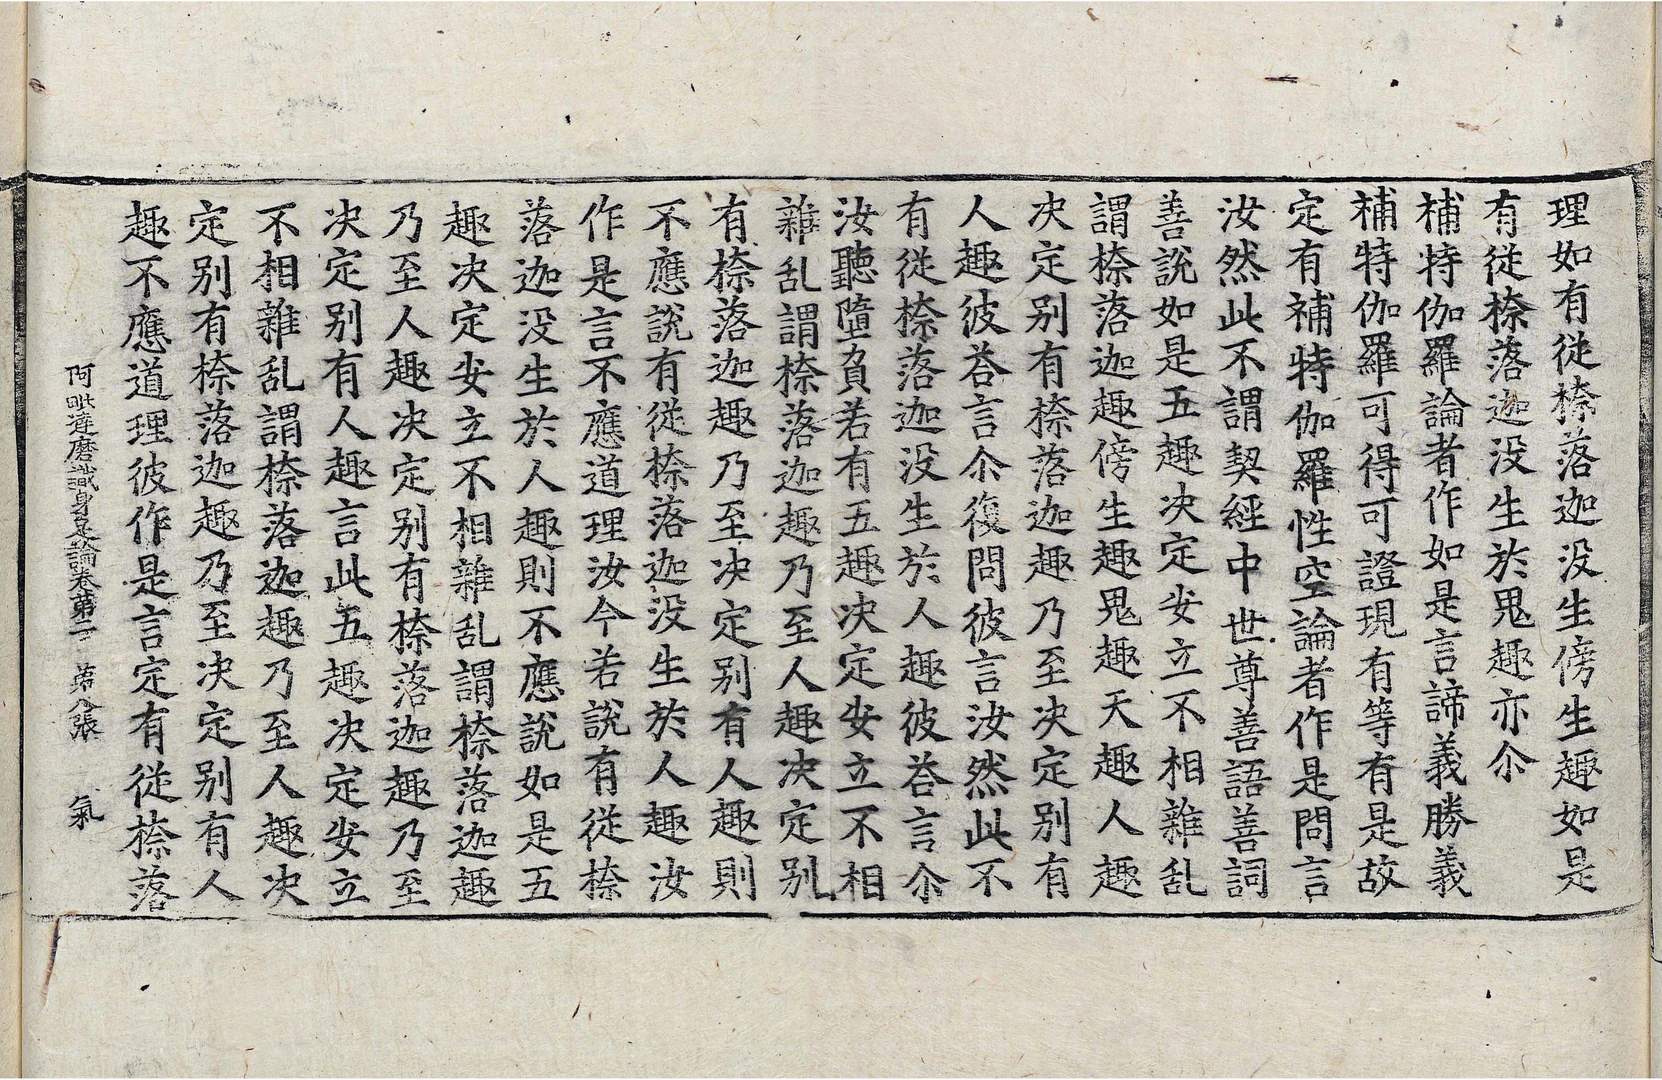 理如有從㮈落迦没生傍生趣如是
有從㮈落迦没生於鬼趣亦尒
補特伽羅論者作如是言諦義勝義
補特伽羅可得可證現有等有是故
定有補特伽羅性空論者作是問言
汝然此不謂契經中世尊善語善詞
善說如是五趣决定安立不相雜乱
謂㮈落迦趣傍生趣鬼趣天趣人趣
决定别有㮈落迦趣乃至决定别有
人趣彼荅言尒復問彼言汝然此不
有從㮈落迦没生於人趣彼荅言尒
汝聽墮負若有五趣决定安立不相
雜乱謂㮈落迦趣乃至人趣决定别
有㮈落迦趣乃至决定别有人趣則
不應說有從㮈落迦没生於人趣汝
作是言不應道理汝今若說有從㮈
落迦没生於人趣則不應說如是五
趣决定安立不相雜乱謂㮈落迦趣
乃至人趣决定别有㮈落迦趣乃至
决定别有人趣言此五趣决定安立
不相雜乱謂㮈落迦趣乃至人趣决
定别有㮈落迦趣乃至决定别有人
趣不應道理彼作是言定有從㮈落
阿毗達磨識身足論卷第二 第八張 氣